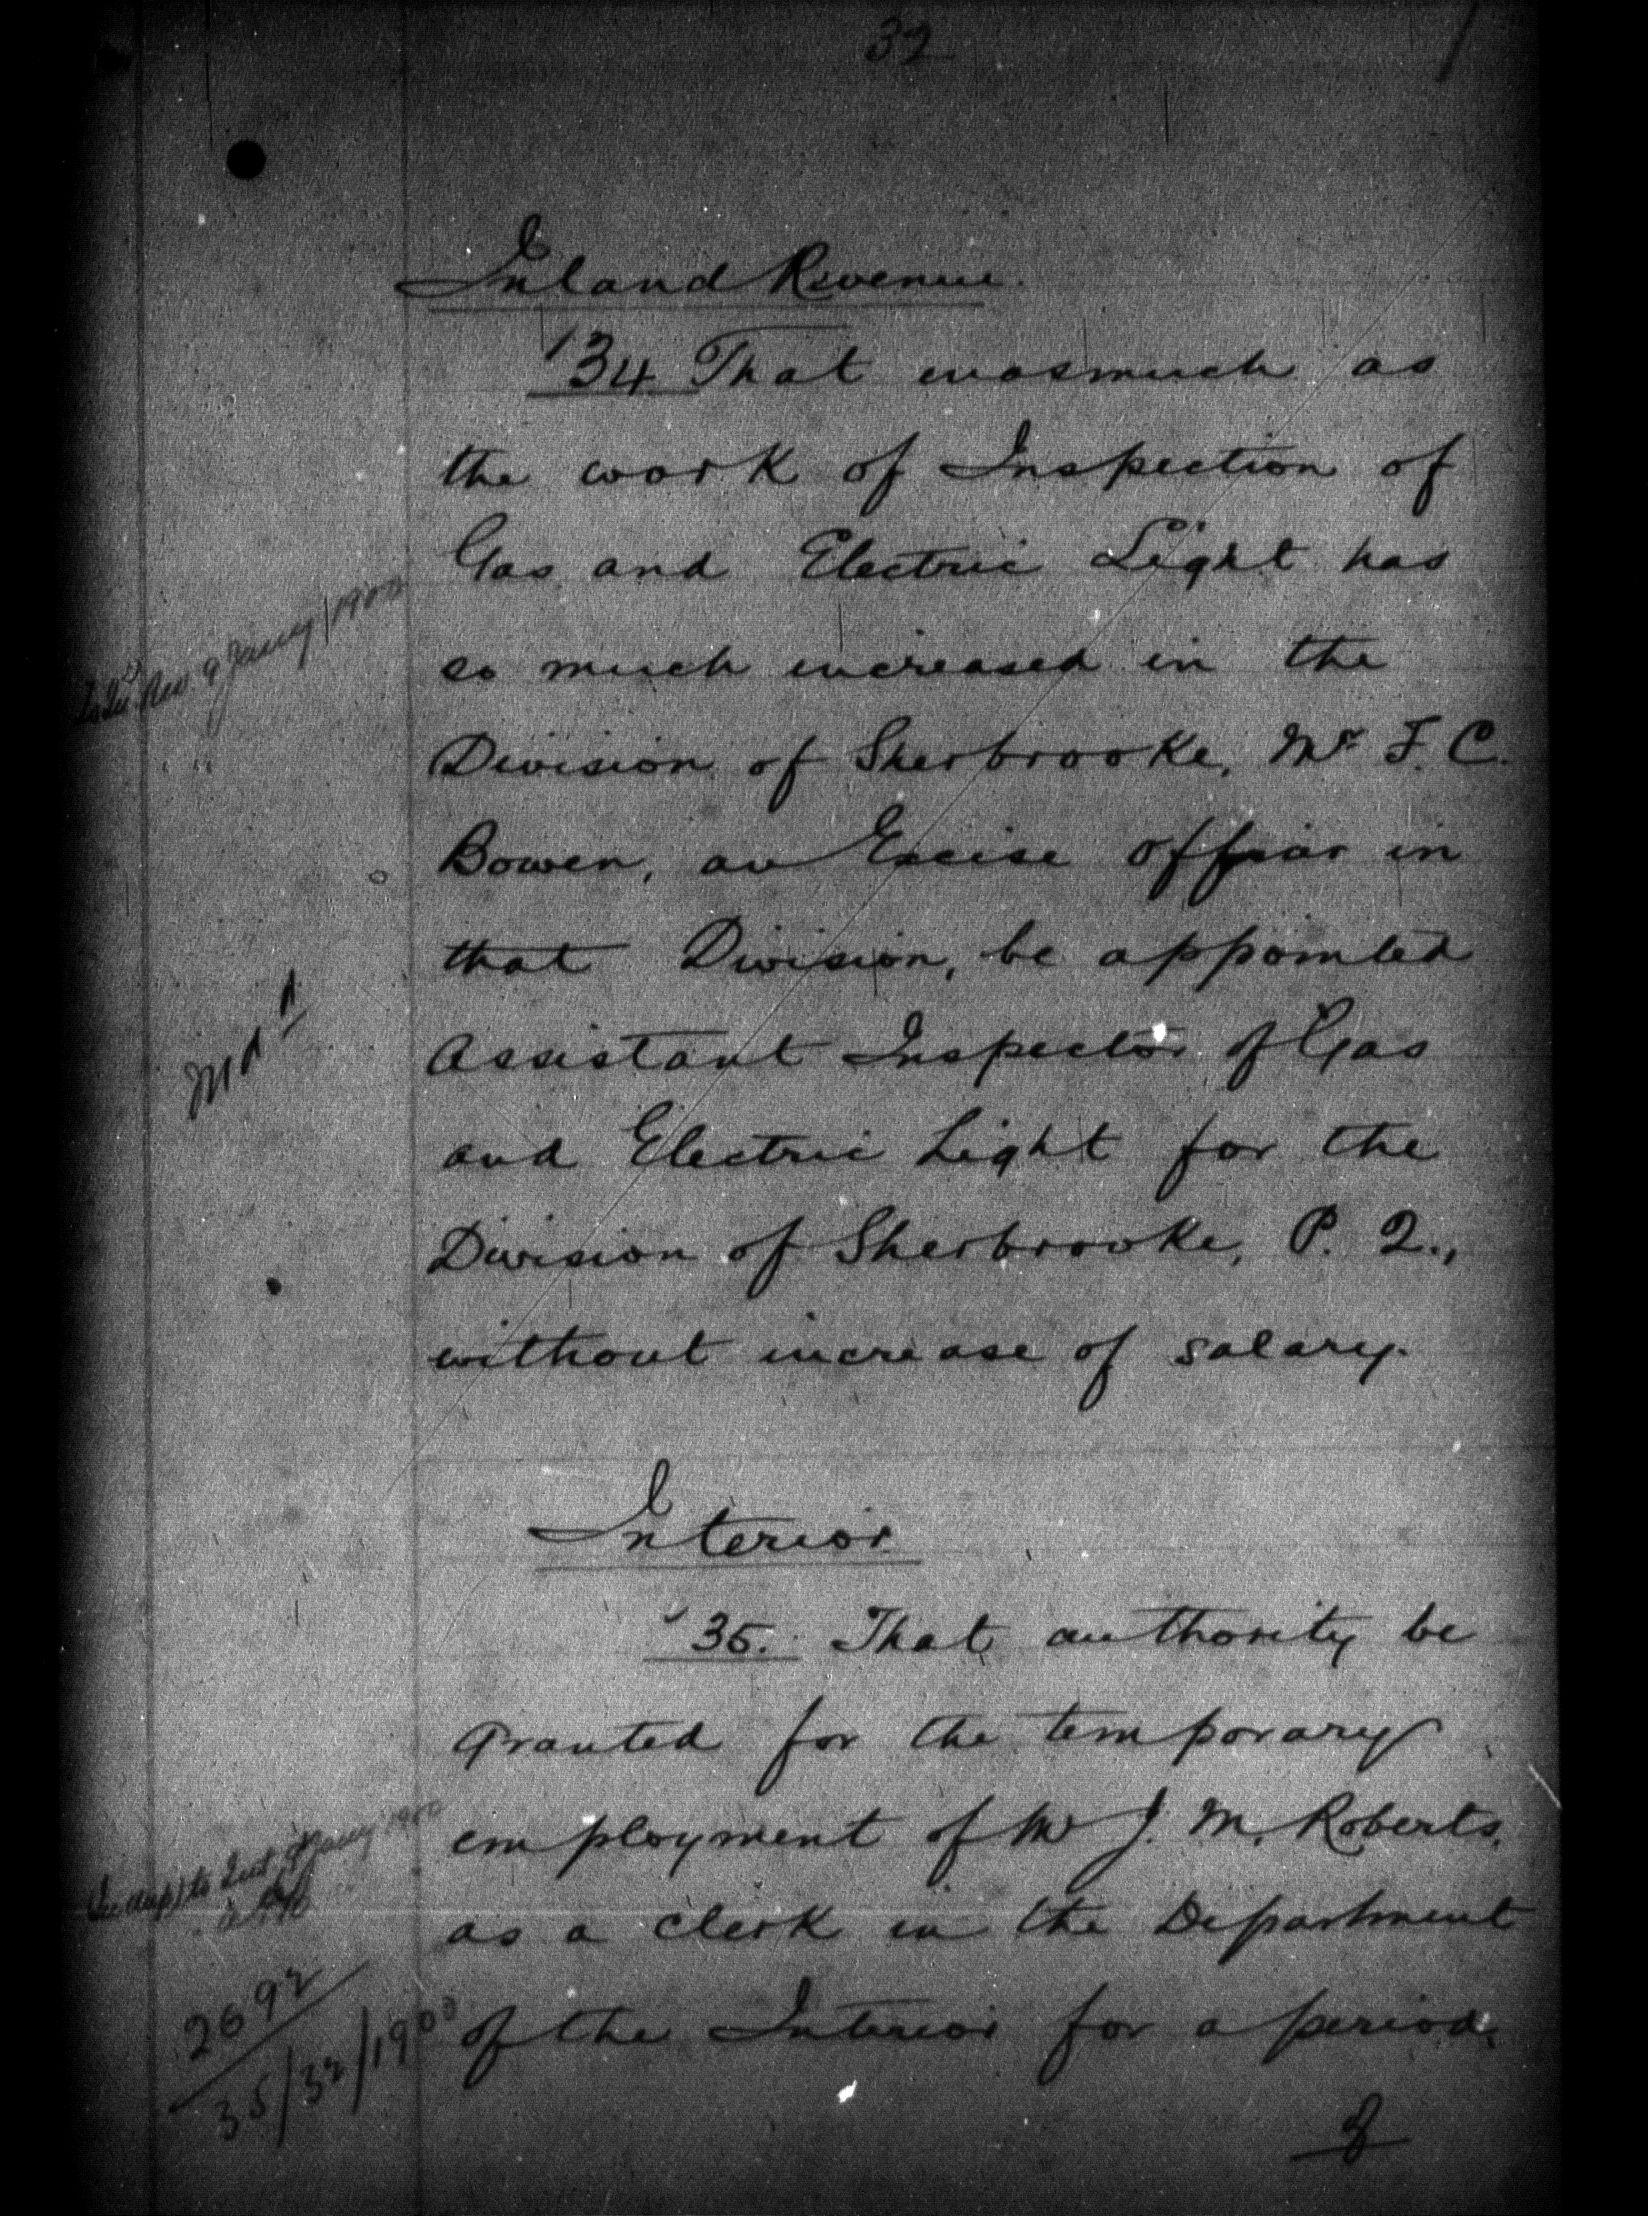 32
Inland Revenue.
34 That inasmuch as
the work of Inspection of
Gas and Electric Light has
so much increased in the
To Inl. Rev. 9 Jany/1900
Division of Sherbrooke, Mr F. C.
Bowen, an Excise officer in
that Division, be appointed
Assistant Inspector of Gas
and Electric Light for the
Division of Sherbrooke, P. Q.,
without increase of salary.
Interior
35. That authority be
granted for the temporary
employment of Mr J. M. Roberts,
as a clerk in the Department
to Int. 9 Jany 1900
of the Interior for a period
2692
35/32/1900
of